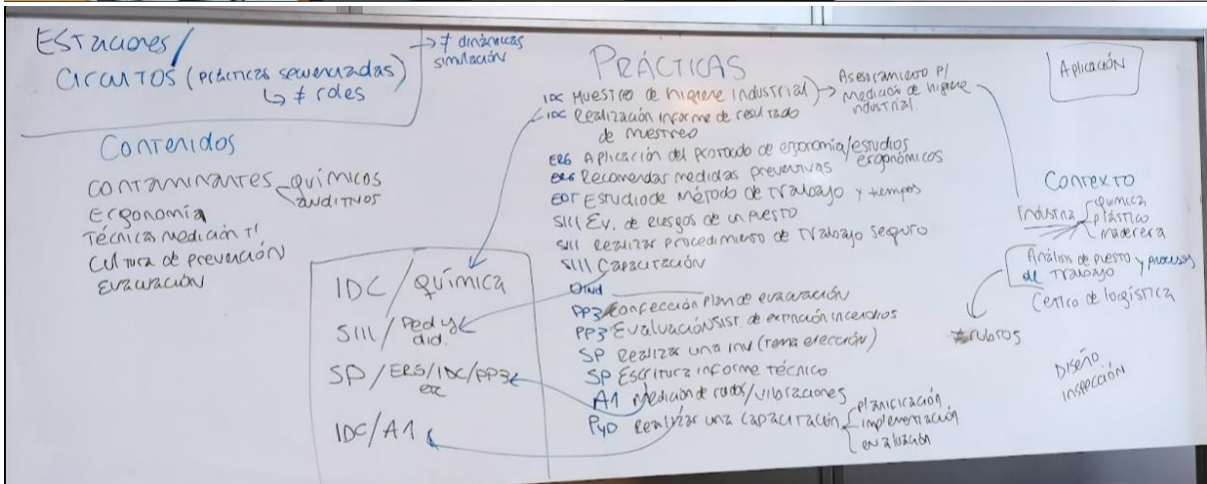 ESTACIONES/
CIRCUITOS (prácticas secuenciadas)
↳ ≠ roles
→ ≠ dinámicas
simulación
Contenidos
contaminantes
químicos
auditivos
Ergonomía
Técnicas medición
Cultura de prevención
Evacuación
IDC/Química
SIII/Ped y
did.
SP/ERG/IDC/PP3
etc
IDC/A1
PRÁCTICAS
IDC Muestreo de higiene industrial → Asesoramiento p/
medición de higiene
industrial.
IDC Realización informe de resultado
de muestreo
ERG Aplicación del protocolo de ergonomía/estudios
ergonómicos
ERG Recomendar medidas preventivas
EOT Estudio de Método de Trabajo y tiempos
SIII Ev. de riesgos de un puesto
SIII Realizar procedimiento de trabajo seguro
SIII Capacitación
PP3 Confección Plan de evacuación
PP3 Evaluación Sist de extinción incendios
SP Realizar una inv (tema elección)
SP Escritura informe técnico
A1 Medición de ruidos/vibraciones
PyD Realizar una capacitación
planificación
implementación
evaluación
Aplicación
Contexto
Industria
química
plástico
maderera
Análisis de puesto y procesos
de Trabajo
Centro de logística
≠ rubros
Diseño
inspección